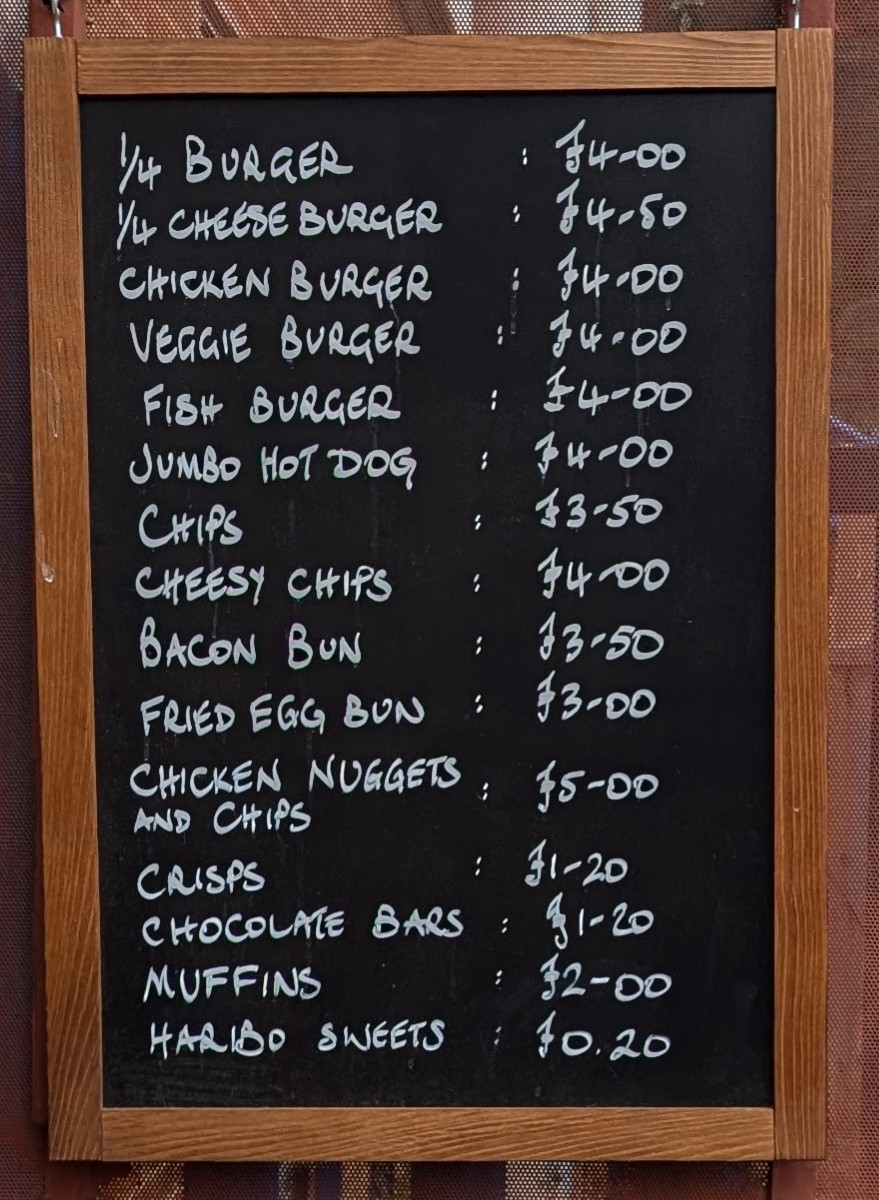 1/4 BURGER : £4-00
1/4 CHEESE BURGER : £4-50
CHICKEN BURGER : £4-00
VEGGIE BURGER : £4-00
FISH BURGER : £4-00
JUMBO HOT DOG : £4-00
CHIPS : £3-50
CHEESY CHIPS : £4-00
BACON BUN : £3-50
FRIED EGG BUN : £3-00
CHICKEN NUGGETS : £5-00
AND CHIPS
CRISPS : £1-20
CHOCOLATE BARS : £1-20
MUFFINS : £2-00
HARIBO SWEETS : £0.20